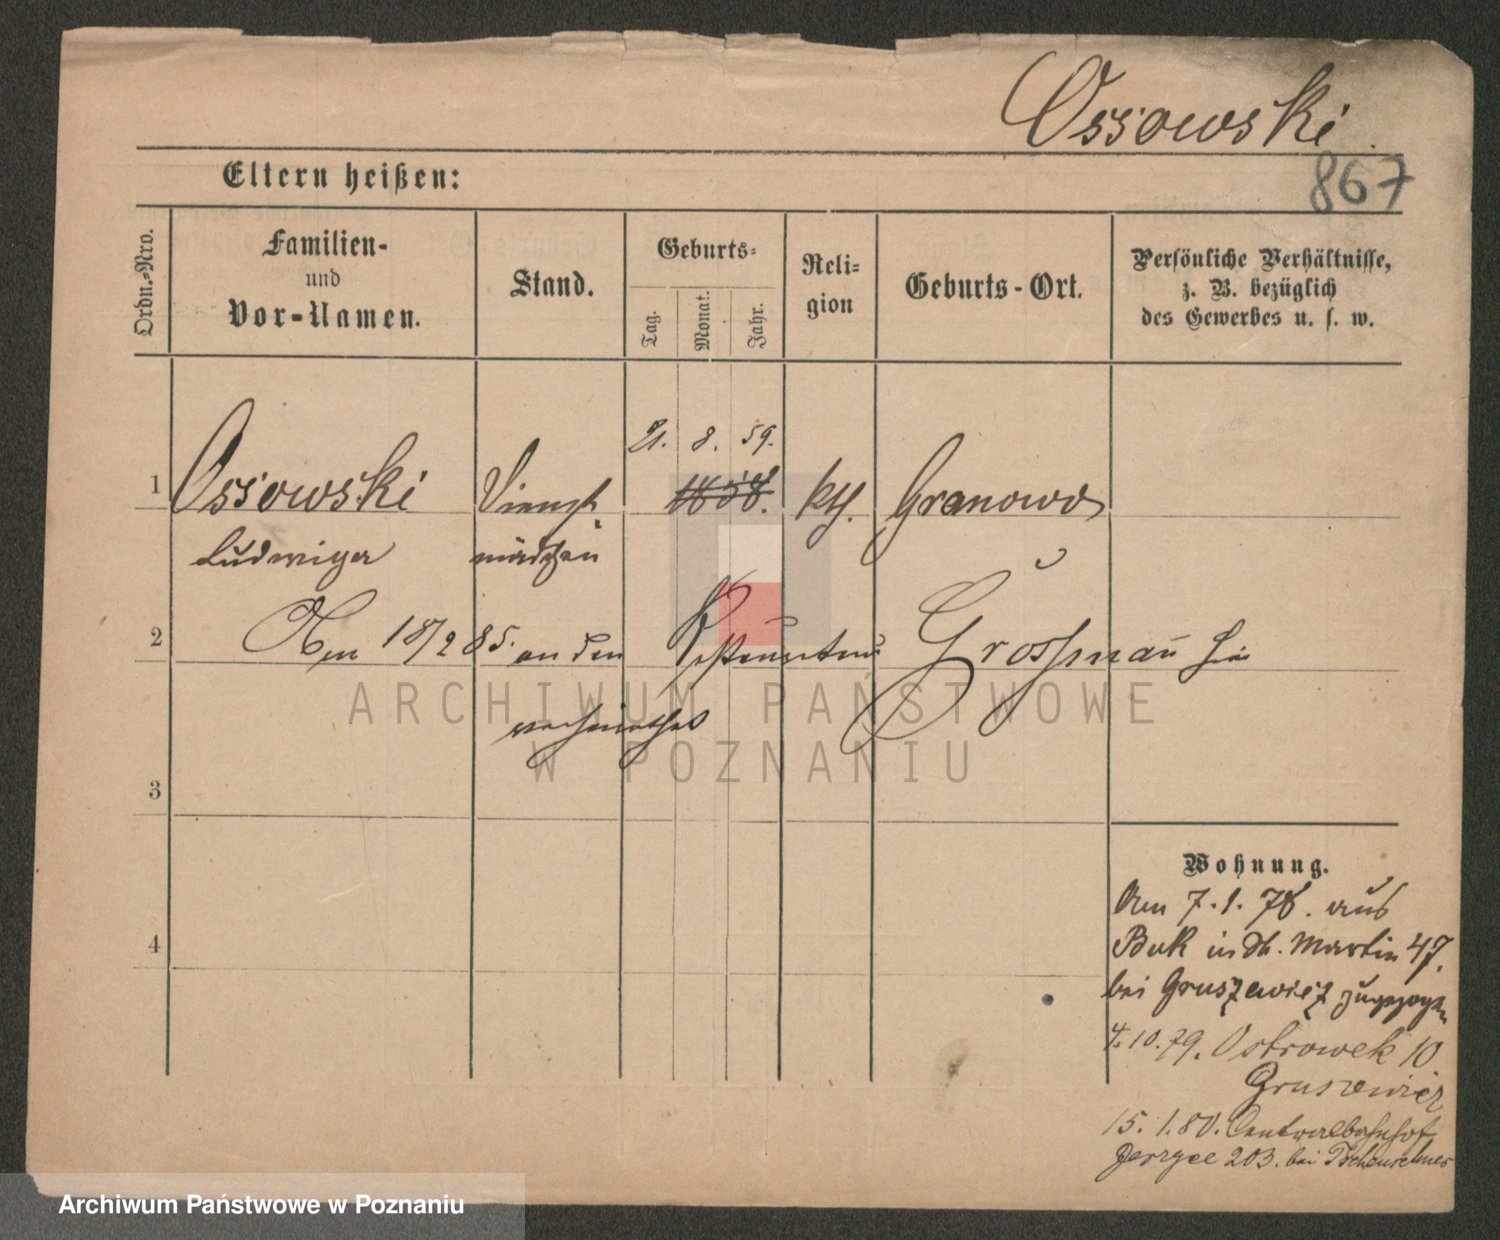 Ossowski
867
Eltern heißen:
Ordn.-Nro.
Familien-
und
Vor-Namen.
Stand.
Geburts-
Tag.
Monat.
Jahr.
Reli-
gion
Geburts-Ort.
Persönliche Verhältnisse,
z. B. bezüglich
des Gewerbes u. s. w.
21. 8. 59.
1 Ossowski Dienst- 1858. kth. Granowo
Ludwiga mädchen
2 Am 18/2 85. an den Restaurateur Großmann hier
verheirathet
ARCHIWUM PAŃSTWOWE
W POZNANIU
3
4
Wohnung.
Am 7.1.78. aus
Buk in St. Martin 47.
bei Gruszewicz zugezogen
4.10.79. Ostrowek 10
Gruszewicz
15.1.80. Centralbahnhof
Jerzyce 203. bei
Archiwum Państwowe w Poznaniu